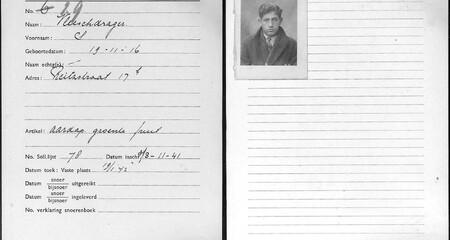 No. 29
Naam: Vleeschdrager
Voornaam: S
Geboortedatum: 19-11-16
Naam echtg(n):
Adres: Reitzstraat 17
Artikel: aardap groente fruit
No. Soll.lijst 78 Datum inschr. -11-41
Datum toek: Vaste plaats
Datum snoer bijsnoer uitgereikt
Datum snoer bijsnoer ingeleverd
No. verklaring snoerenboek :